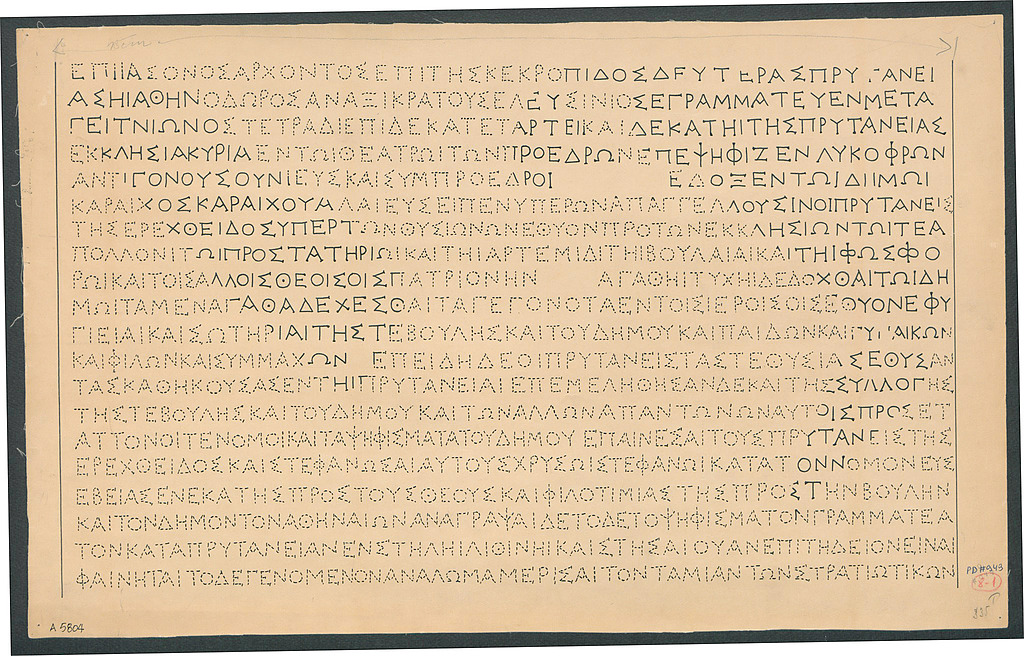 ΕΠΙΙΑΣΟΝΟΣΑΡΧΟΝΤΟΣΕΠΙΤΗΣΚΕΚΡΟΠΙΔΟΣΔΕΥΤΕΡΑΣΠΡΥΤΑΝΕΙ
ΑΣΗΙΑΘΗΝΟΔΩΡΟΣΑΝΑΞΙΚΡΑΤΟΥΣΕΛΕΥΣΙΝΙΟΣΕΓΡΑΜΜΑΤΕΥΕΝΜΕΤΑ
ΓΕΙΤΝΙΩΝΟΣΤΕΤΡΑΔΙΕΠΙΔΕΚΑΤΕΤΑΡΤΕΙΚΑΙΔΕΚΑΤΗΙΤΗΣΠΡΥΤΑΝΕΙΑΣ
ΕΚΚΛΗΣΙΑΚΥΡΙΑΕΝΤΩΙΘΕΑΤΡΩΙΤΩΝΠΡΟΕΔΡΩΝΕΠΕΨΗΦΙΖΕΝΛΥΚΟΦΡΩΝ
ΑΝΤΙΓΟΝΟΥΣΟΥΝΙΕΥΣΚΑΙΣΥΜΠΡΟΕΔΡΟΙ ΕΔΟΞΕΝΤΩΙΔΗΜΩΙ
ΚΑΡΑΙΧΟΣΚΑΡΑΙΧΟΥΑΛΑΙΕΥΣΕΙΠΕΝΥΠΕΡΩΝΑΠΑΓΓΕΛΛΟΥΣΙΝΟΙΠΡΥΤΑΝΕΙΣ
ΤΗΣΕΡΕΧΘΕΙΔΟΣΥΠΕΡΤΩΝΘΥΣΙΩΝΩΝΕΘΥΟΝΠΡΟΤΩΝΕΚΚΛΗΣΙΩΝΤΩΙΤΕΑ
ΠΟΛΛΩΝΙΤΩΙΠΡΟΣΤΑΤΗΡΙΩΙΚΑΙΤΗΙΑΡΤΕΜΙΔΙΤΗΙΒΟΥΛΑΙΑΙΚΑΙΤΗΙΦΩΣΦΟ
ΡΩΙΚΑΙΤΟΙΣΑΛΛΟΙΣΘΕΟΙΣΟΙΣΠΑΤΡΙΟΝΗΝ ΑΓΑΘΗΙΤΥΧΗΙΔΕΔΟΧΘΑΙΤΩΙΔΗ
ΜΩΙΤΑΜΕΝΑΓΑΘΑΔΕΧΕΣΘΑΙΤΑΓΕΓΟΝΟΤΑΕΝΤΟΙΣΙΕΡΟΙΣΟΙΣΕΘΥΟΝΕΦΥ
ΓΙΕΙΑΙΚΑΙΣΩΤΗΡΙΑΙΤΗΣΤΕΒΟΥΛΗΣΚΑΙΤΟΥΔΗΜΟΥΚΑΙΠΑΙΔΩΝΚΑΙΓΥΝΑΙΚΩΝ
ΚΑΙΦΙΛΩΝΚΑΙΣΥΜΜΑΧΩΝ ΕΠΕΙΔΗΔΕΟΙΠΡΥΤΑΝΕΙΣΤΑΣΤΕΘΥΣΙΑΣΕΘΥΣΑΝ
ΤΑΣΚΑΘΗΚΟΥΣΑΣΕΝΤΗΙΠΡΥΤΑΝΕΙΑΙΕΠΕΜΕΛΗΘΗΣΑΝΔΕΚΑΙΤΗΣΣΥΛΛΟΓΗΣ
ΤΗΣΤΕΒΟΥΛΗΣΚΑΙΤΟΥΔΗΜΟΥΚΑΙΤΩΝΑΛΛΩΝΑΠΑΝΤΩΝΩΝΑΥΤΟΙΣΠΡΟΣΕΤ
ΑΤΤΟΝΟΙΤΕΝΟΜΟΙΚΑΙΤΑΨΗΦΙΣΜΑΤΑΤΟΥΔΗΜΟΥ ΕΠΑΙΝΕΣΑΙΤΟΥΣΠΡΥΤΑΝΕΙΣΤΗΣ
ΕΡΕΧΘΕΙΔΟΣΚΑΙΣΤΕΦΑΝΩΣΑΙΑΥΤΟΥΣΧΡΥΣΩΙΣΤΕΦΑΝΩΙΚΑΤΑΤΟΝΝΟΜΟΝΕΥΣ
ΕΒΕΙΑΣΕΝΕΚΑΤΗΣΠΡΟΣΤΟΥΣΘΕΟΥΣΚΑΙΦΙΛΟΤΙΜΙΑΣΤΗΣΠΡΟΣΤΗΝΒΟΥΛΗΝ
ΚΑΙΤΟΝΔΗΜΟΝΤΟΝΑΘΗΝΑΙΩΝΑΝΑΓΡΑΨΑΙΔΕΤΟΔΕΤΟΨΗΦΙΣΜΑΤΟΝΓΡΑΜΜΑΤΕΑ
ΤΟΝΚΑΤΑΠΡΥΤΑΝΕΙΑΝΕΝΣΤΗΛΗΙΛΙΘΙΝΗΙΚΑΙΣΤΗΣΑΙΟΥΑΝΕΠΙΤΗΔΕΙΟΝΕΙΝΑΙ
ΦΑΙΝΗΤΑΙΤΟΔΕΓΕΝΟΜΕΝΟΝΑΝΑΛΩΜΑΜΕΡΙΣΑΙΤΟΝΤΑΜΙΑΝΤΩΝΣΤΡΑΤΙΩΤΙΚΩΝ
PD#943
8-1
A 5804